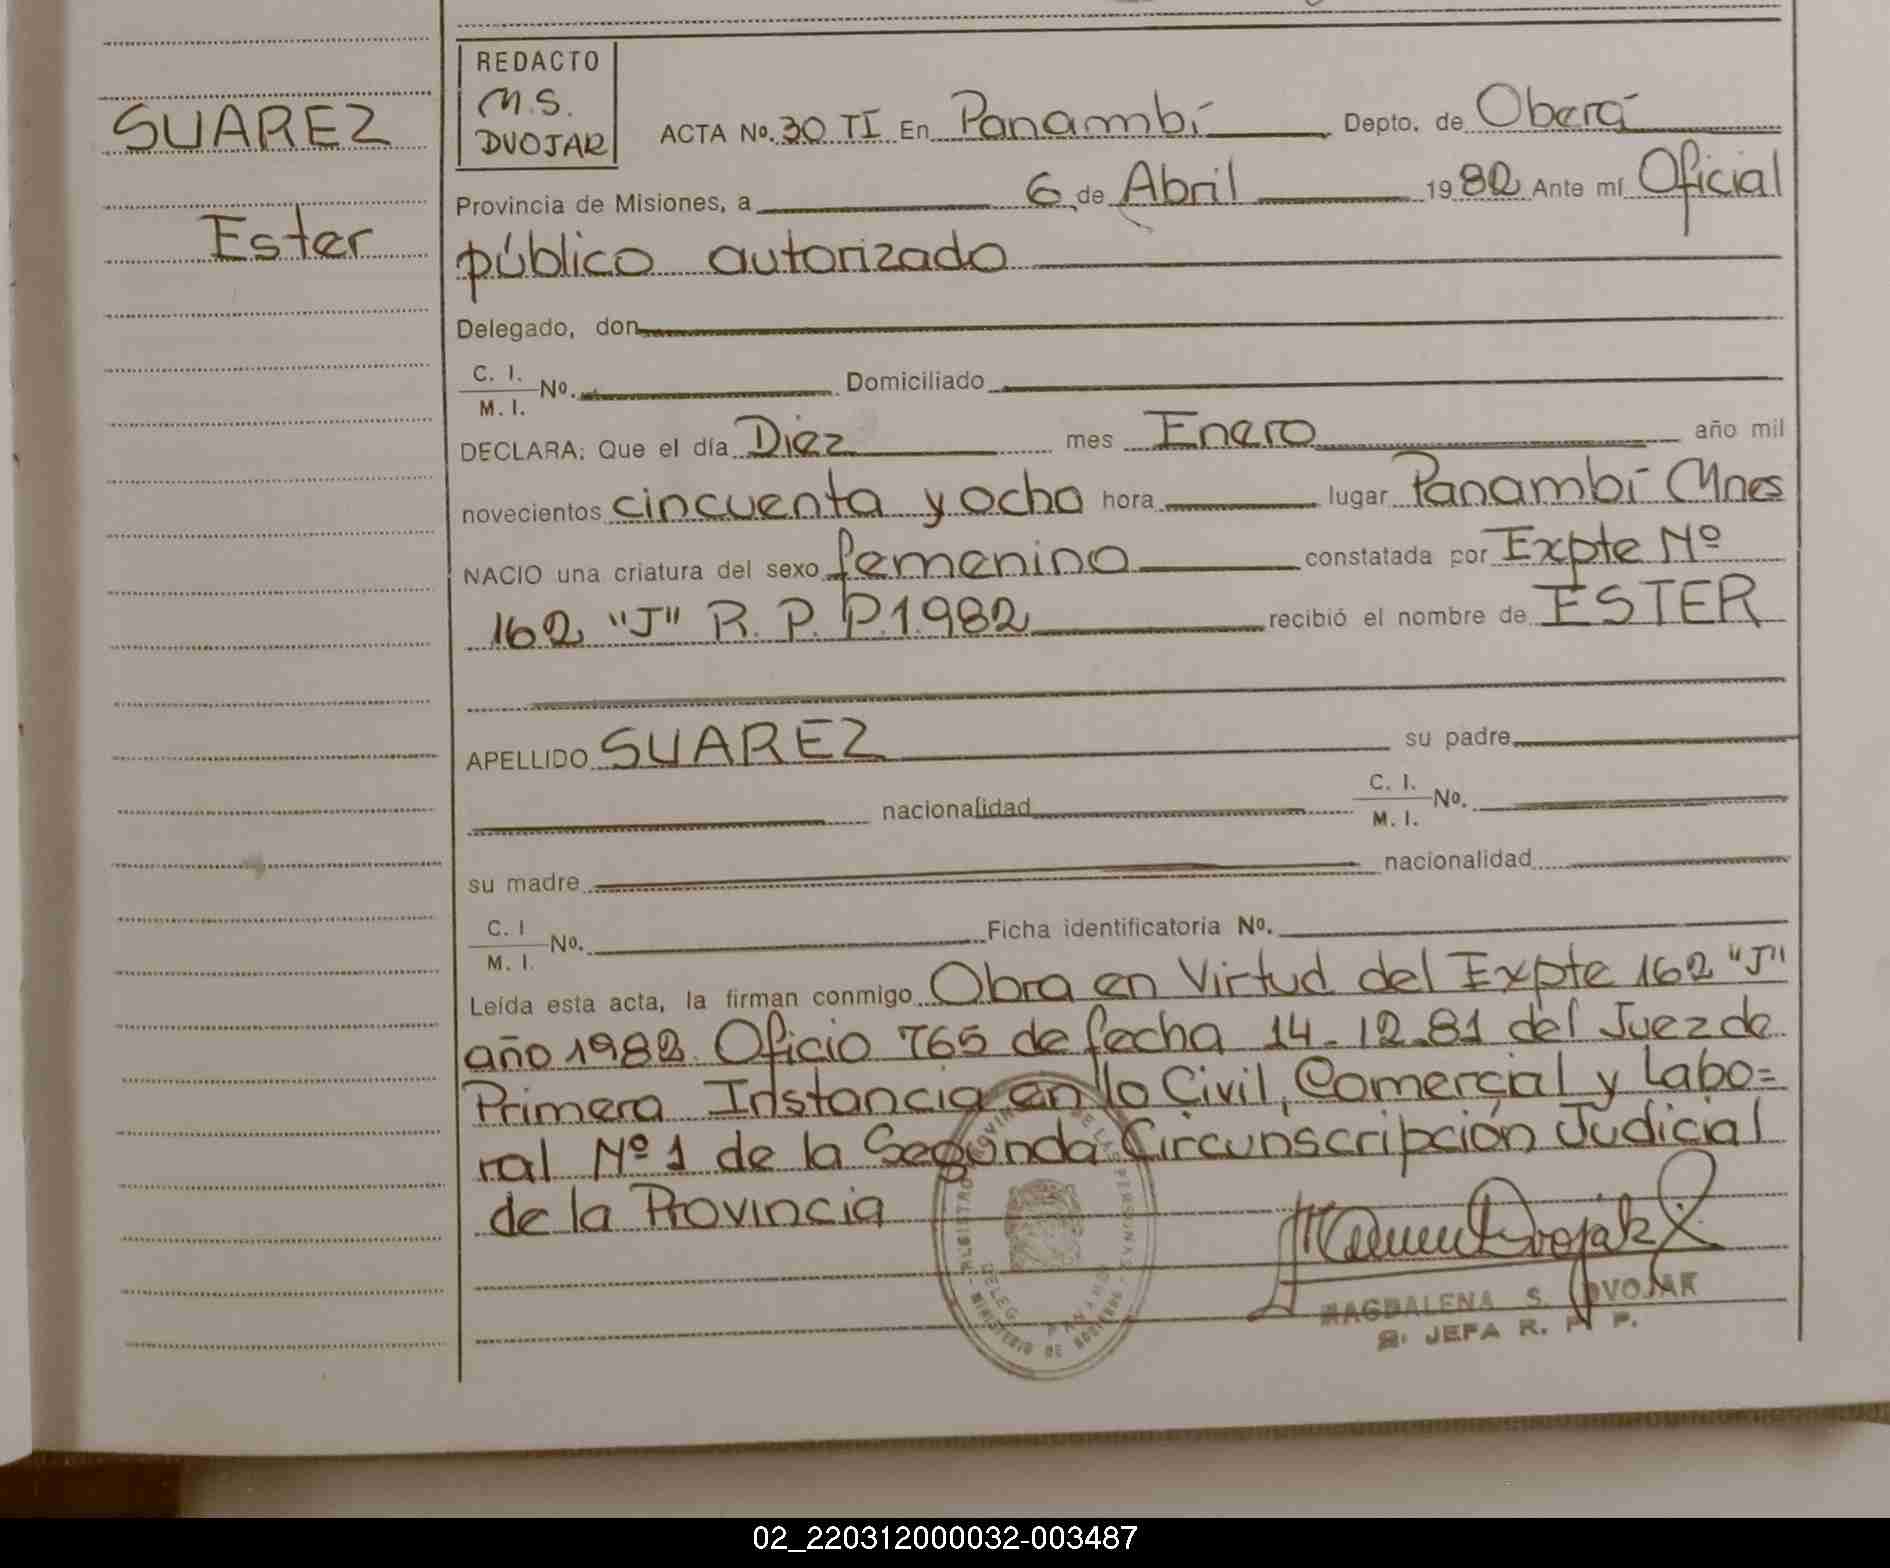 SUAREZ
Ester
REDACTO
M.S.
DVOJAK
ACTA No. 30 TI En Panambí Depto. de Oberá
Provincia de Misiones, a 6 de Abril 1982 Ante mí Oficial
público autorizado
Delegado, don
C. I. / M. I. No. Domiciliado
DECLARA: Que el día Diez mes Enero año mil
novecientos cincuenta y ocho hora lugar Panambí Mnes
NACIO una criatura del sexo femenino constatada por Expte Nº
162 "J" R. P. P. 1.982 recibió el nombre de ESTER
APELLIDO SUAREZ su padre
nacionalidad C. I. / M. I. No.
su madre nacionalidad
C. I / M. I. No. Ficha identificatoria No.
Leída esta acta, la firman conmigo Obra en Virtud del Expte 162 "J"
año 1982. Oficio 765 de fecha 14-12-81 del Juez de
Primera Instancia en lo Civil, Comercial y Labo=
ral Nº 1 de la Segunda Circunscripción Judicial
de la Provincia
DE LAS PERSONAS
MINISTERIO DE GOBIERNO
DELEG. PANAMBI
MAGDALENA S. DVOJAK
JEFA R. P. P.
02_220312000032-003487